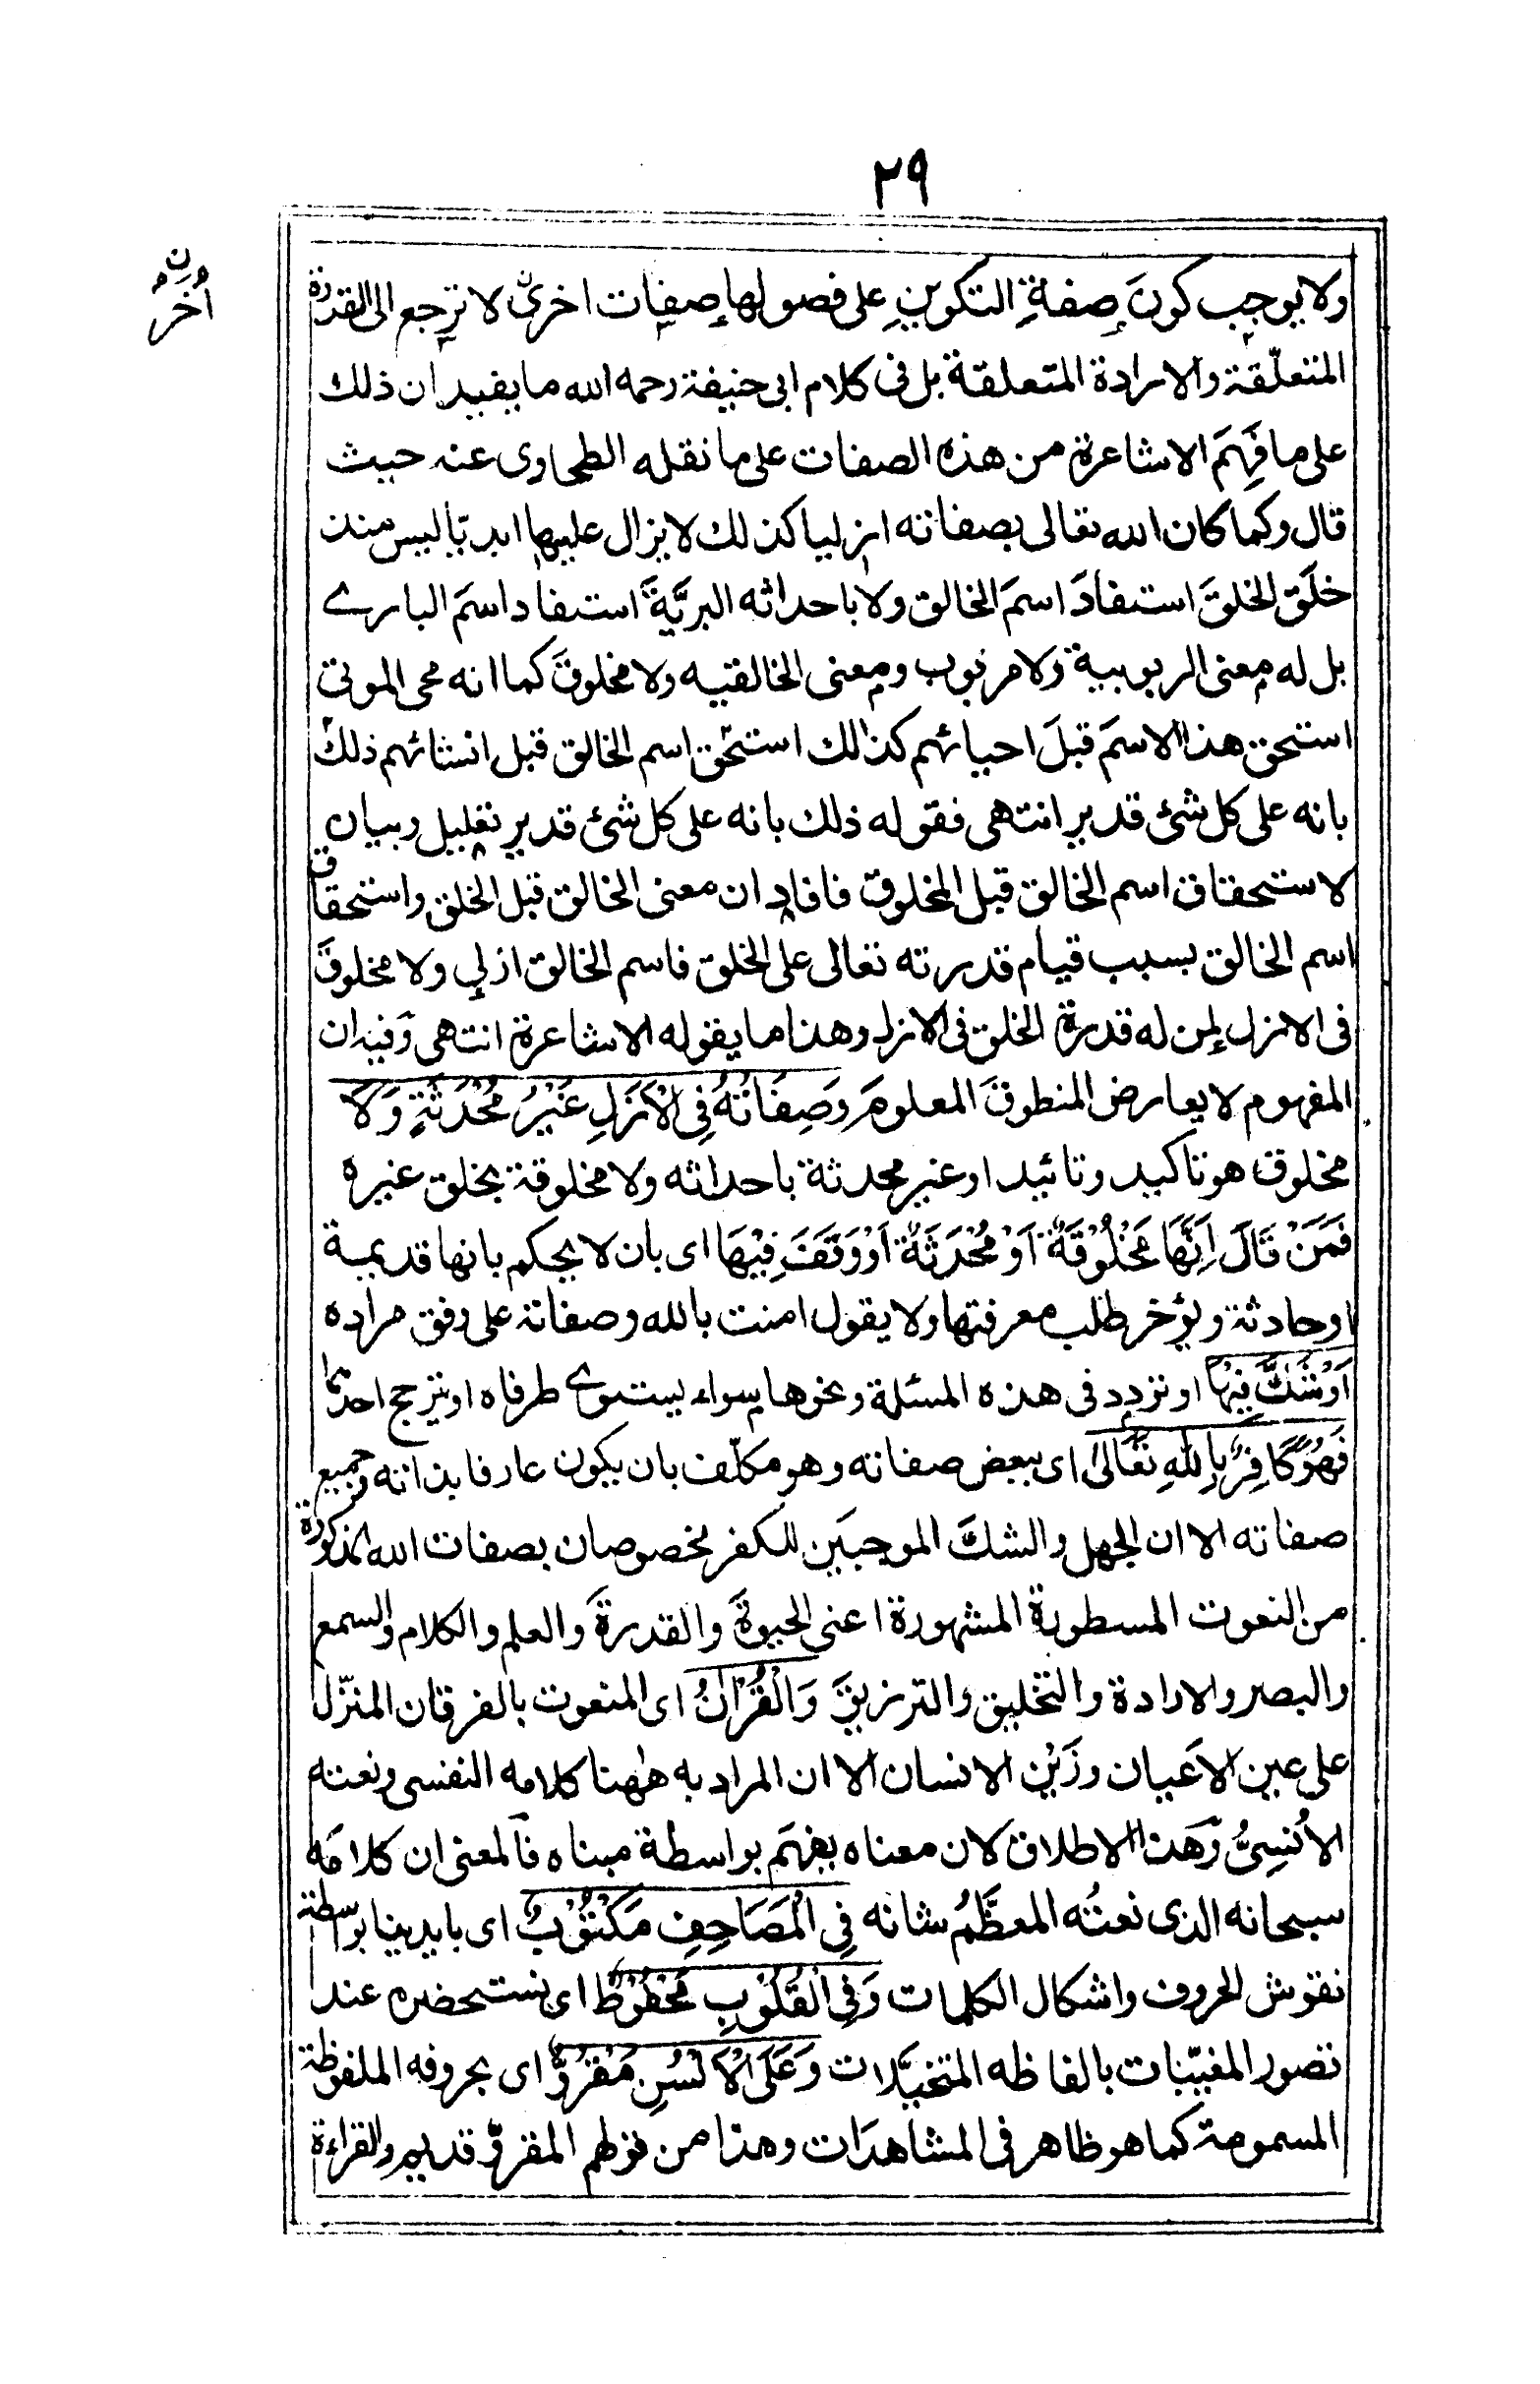 ٢٩
ن
اُخَرُ
ولا يوجب كونَ صفةِ التكوينِ على فصولها صفات اخرىٰ لا ترجع الى القدرة
المتعلّقة والارادة المتعلقة بل فى كلام ابى حنيفة رحمه الله ما يفيد ان ذلك
على ما فَهِمَ الاشاعرة من هذه الصفات على ما نقله الطحاوى عنه حيث
قال وكما كان الله تعالى بصفاته ازليا كذلك لا يزال عليها ابديّا ليس منذ
خلَق الخلقَ استفادَ اسمَ الخالق ولا باحداثه البريَّةَ استفاد اسمَ البارے
بل له معنى الربوبية ولا مربوب ومعنى الخالقيه ولا مخلوقَ كما انه محى الموتى
استحق هذا الاسمَ قبلَ احيائهم كذالك استحّق اسم الخالق قبل انشائهم ذلك
بانه على كل شئ قدير انتهى فقوله ذلك بانه على كل شئ قدير تعليل وبيان
لاستحقاق اسم الخالق قبل المخلوق فافاد ان معنى الخالق قبل الخلق واستحقاق
اسم الخالق بسبب قيام قدرته تعالى على الخلق فاسم الخالق ازلي ولا مخلوقَ
فى الازل لمن له قدرة الخلق فى الازل وهذا ما يقوله الاشاعرة انتهى وفيه ان
المفهوم لا يعارض المنطوقَ المعلوم وَصِفَاتُهُ فِى الْاَزَلِ غَيْرُ مُحْدَثَةٍ وَلَا
مخلوق هو تاكيد وتائيد او غير محدثة باحداثه ولا مخلوقة بخلق غيره
فَمَنْ قَالَ اِنَّهَا مَخْلُوْقَةٌ اَوْ مُحْدَثَةٌ اَوْ وَقَفَ فِيْهَا اى بان لا يحكم بانها قديمة
او حادثة ويؤخر طلب معرفتها ولا يقول امنت بالله وصفاته على وفق مراده
اَوْ شَكَّ فِيْهَا او تردد فى هذه المسئلة ونحوها سواء يستوے طرفاه او يترجح احدهما
فَهُوَ كَافِرٌ بِاللّٰهِ تَعَالىٰ اى ببعض صفاته وهو مكلّف بان يكون عارفا بذاته وجميع
صفاته الا ان الجهل والشكَّ الموجبَين للكفر مخصوصان بصفات الله المذكورة
من النعوت المسطورة المشهورة اعنى الحيوةَ والقدرةَ والعلم والكلام والسمع
والبصر والارادة والتخليق والترزيقَ وَالْقُرْاٰنُ اى المنعوت بالفرقان المنزّل
على عين الاَعيان وزَيْنِ الانسان الا ان المراد به هٰهنا كلامه النفسى ونعته
الاُنسِىُّ وَهذا الاطلاق لان معناه يفهَم بواسطة مبناه فالمعنى ان كلامَه
سبحانه الذى نعتُه المعظَّمُ شانه فِى الْمَصَاحِفِ مَكْتُوْبٌ اى بايدينا بواسطة
نقوش الحروف واشكال الكلمات وَفِى الْقُلُوْبِ مَحْفُوْظٌ اى نستحضره عند
تصور المغيّبات بالفاظه المتخيَّلات وَعَلَى الْاَلْسُنِ مَقْرُوٌّ اى بحروفه الملفوظة
المسموعة كما هو ظاهر فى المشاهدَات وهذا من قولهم المقروّ قديم والقراءة